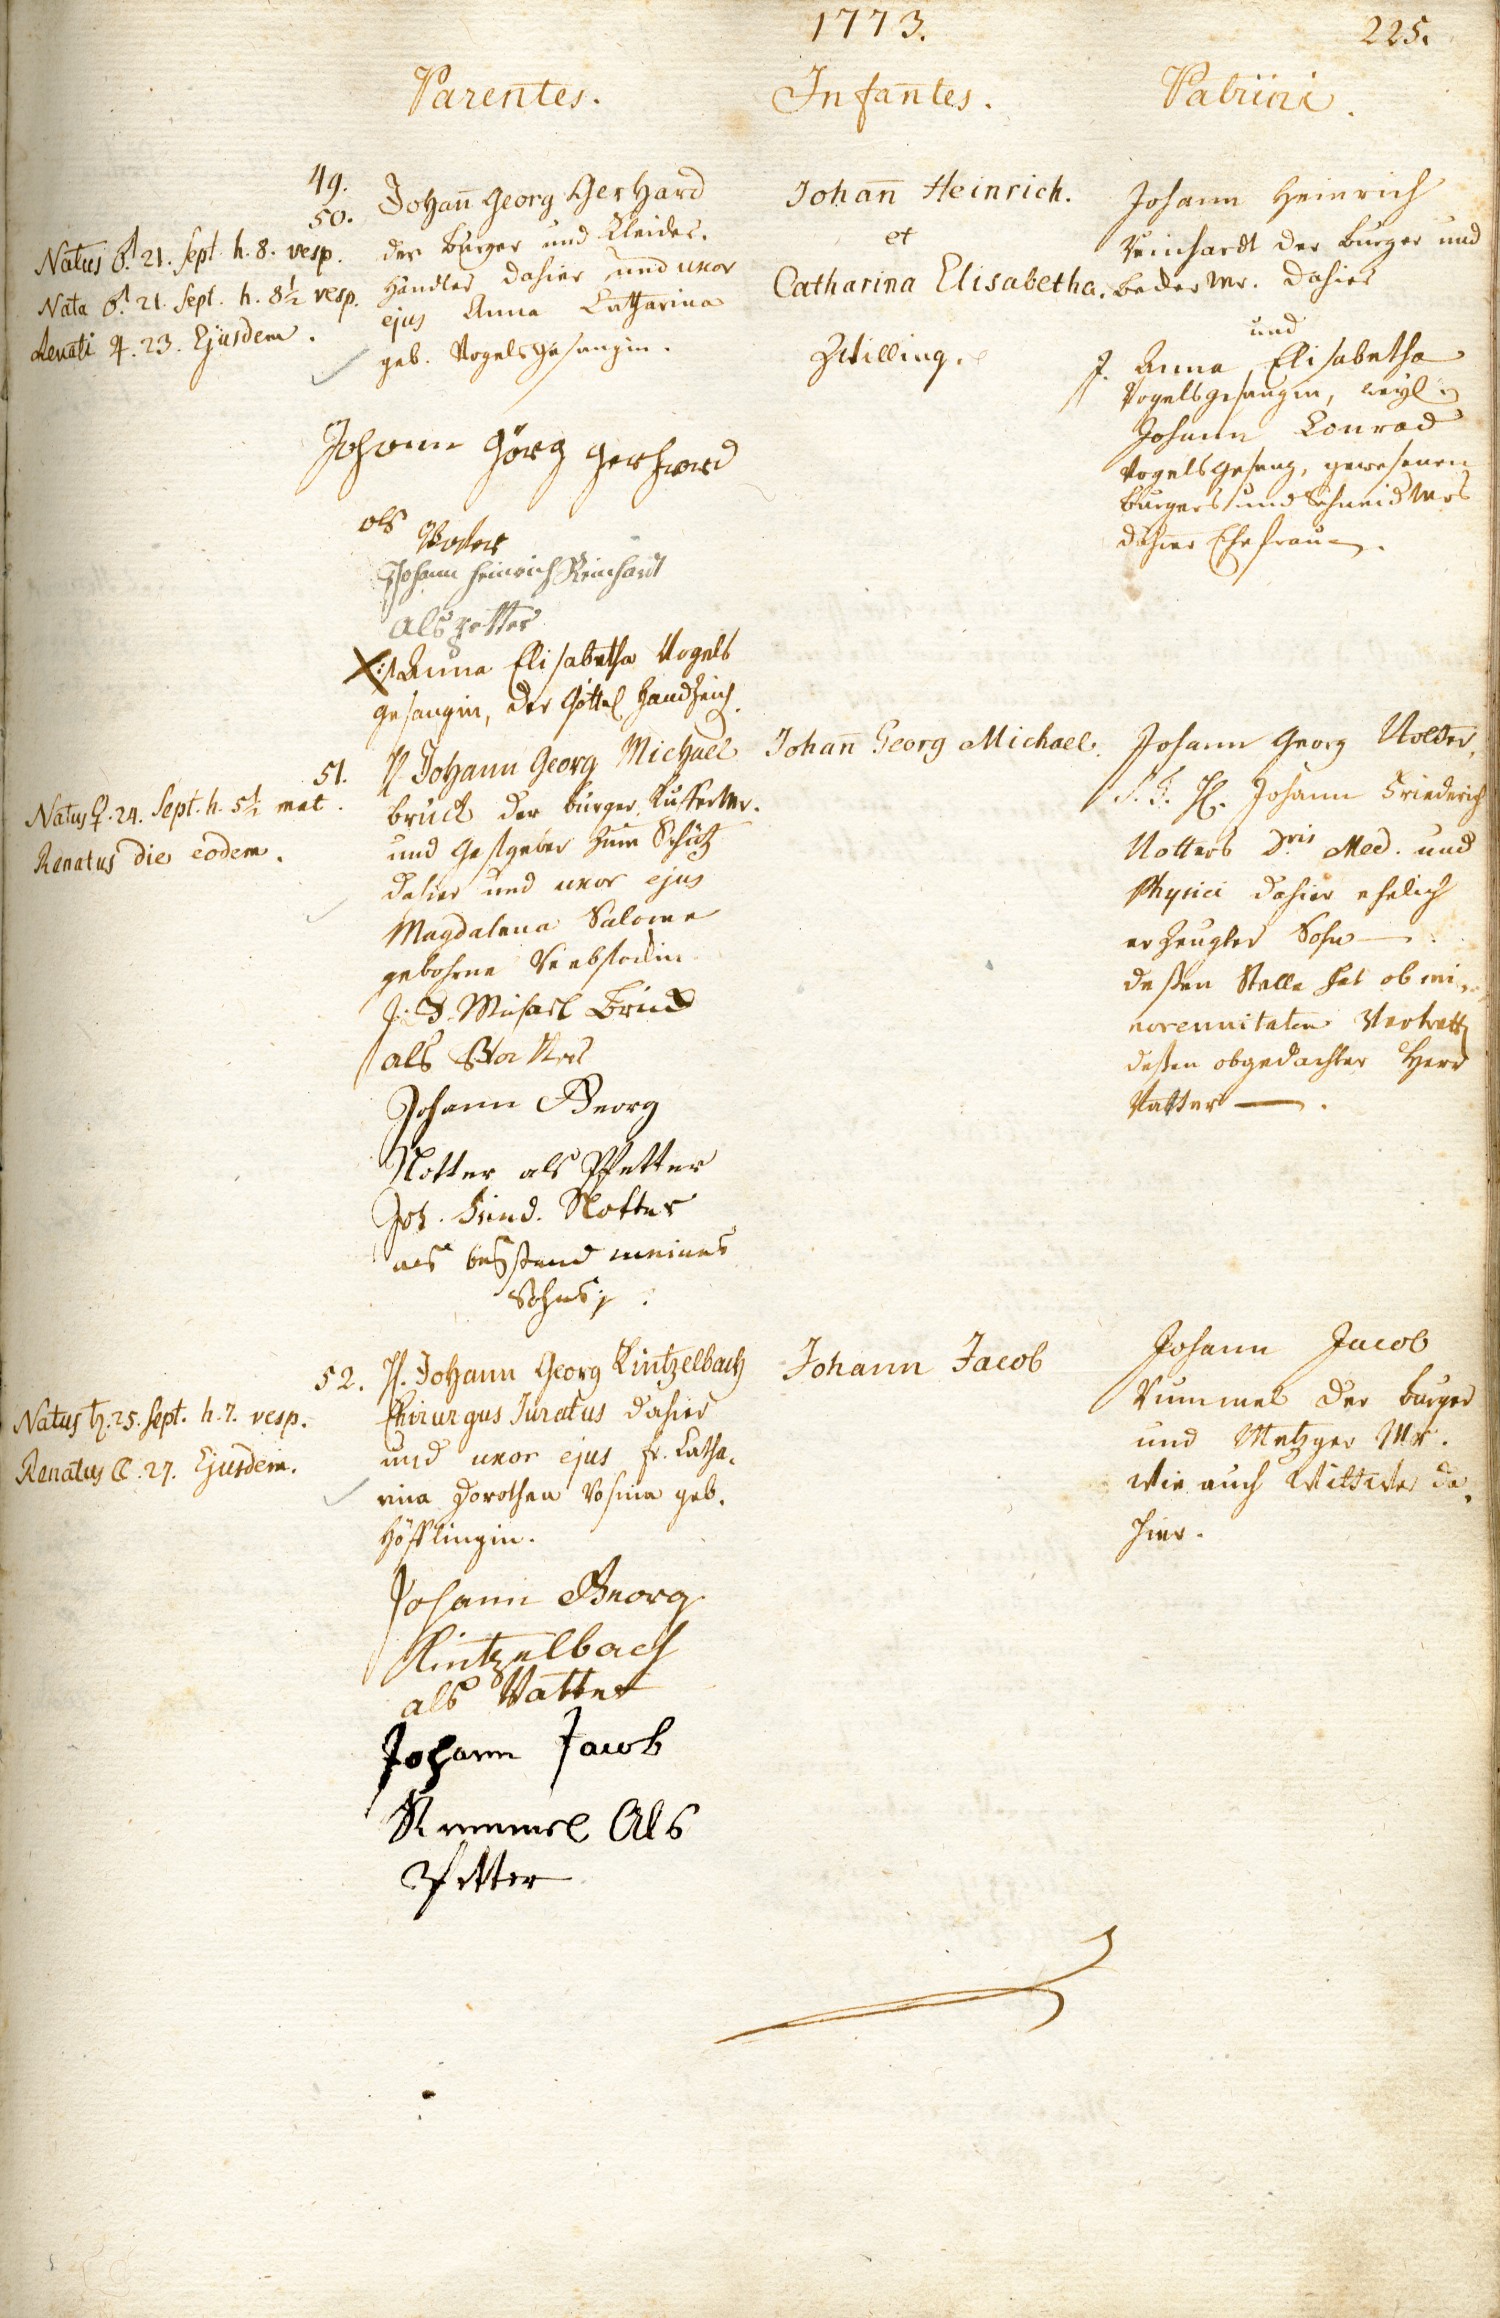 1773.
225.
Parentes.
Infantes.
Patrini.
49.
50.
Natus ♂. 21. Sept. h. 8. vesp.
Nata ♂. 21. Sept. h. 8½ vesp.
Renati ♃. 23. Ejusdem.
Johan̄ Georg Gerhard
der Burger und Kleider-
händler dahier und uxor
ejus Anna Catharina
geb. Vogelsgesangin.
Johan̄ Heinrich.
et
Catharina Elisabetha.
Zwilling.
Johann Heinrich
Reinhardt der Burger und
Beder Mr. dahier
und
J. Anna Elisabetha
Vogelsgesangin, weyl.
Johann Conrad
Vogelsgesang, gewesenen
Burgers und Schneid Mrs
dahier Ehefrau.
Johann Görg Gerhard
als Vater
Johann Heinrich Reinhardt
als Petter
X Anna Elisabetha Vogels
gesangin, der Göttel Handzeich.
51.
Natus ♀. 24. Sept. h. 5½ mat.
Renatus die eodem.
H. Johann Georg Michael
Brück der burger KuferMr.
und Gastgeber zum Schütz
dahier und uxor ejus
Magdalena Salome
gebohrne Rebstockin
J. G. Michael Brück
als Vatter
Johann Georg
Notter als Pfetter
Joh. Fried. Notter
als beystand meines
Sohns
Johan̄ Georg Michael.
Johann Georg Notter,
S. T. H. Johann Friederich
Notters Dris Med. und
Physici dahier ehelich
erzeugter Sohn.
deßen Stelle hat ob mi-
norennitatem Vertrett
deßen obgedachter Herr
Vatter.
52.
Natus ♄. 25. Sept. h. 7. vesp.
Renatus ☾. 27. Ejusdem.
H. Johann Georg Kintzelbach
Chirurgus Juratus dahier
und uxor ejus Fr. Catha-
rina Dorothea Rosina geb.
Höfflingin.
Johann Georg
Kintzelbach
als Vatter
Johann Jacob
Rummel Als
Petter
Johann Jacob
Johann Jacob
Rummel der burger
und Metzger Mr.
wie auch Wittwer da-
hier.